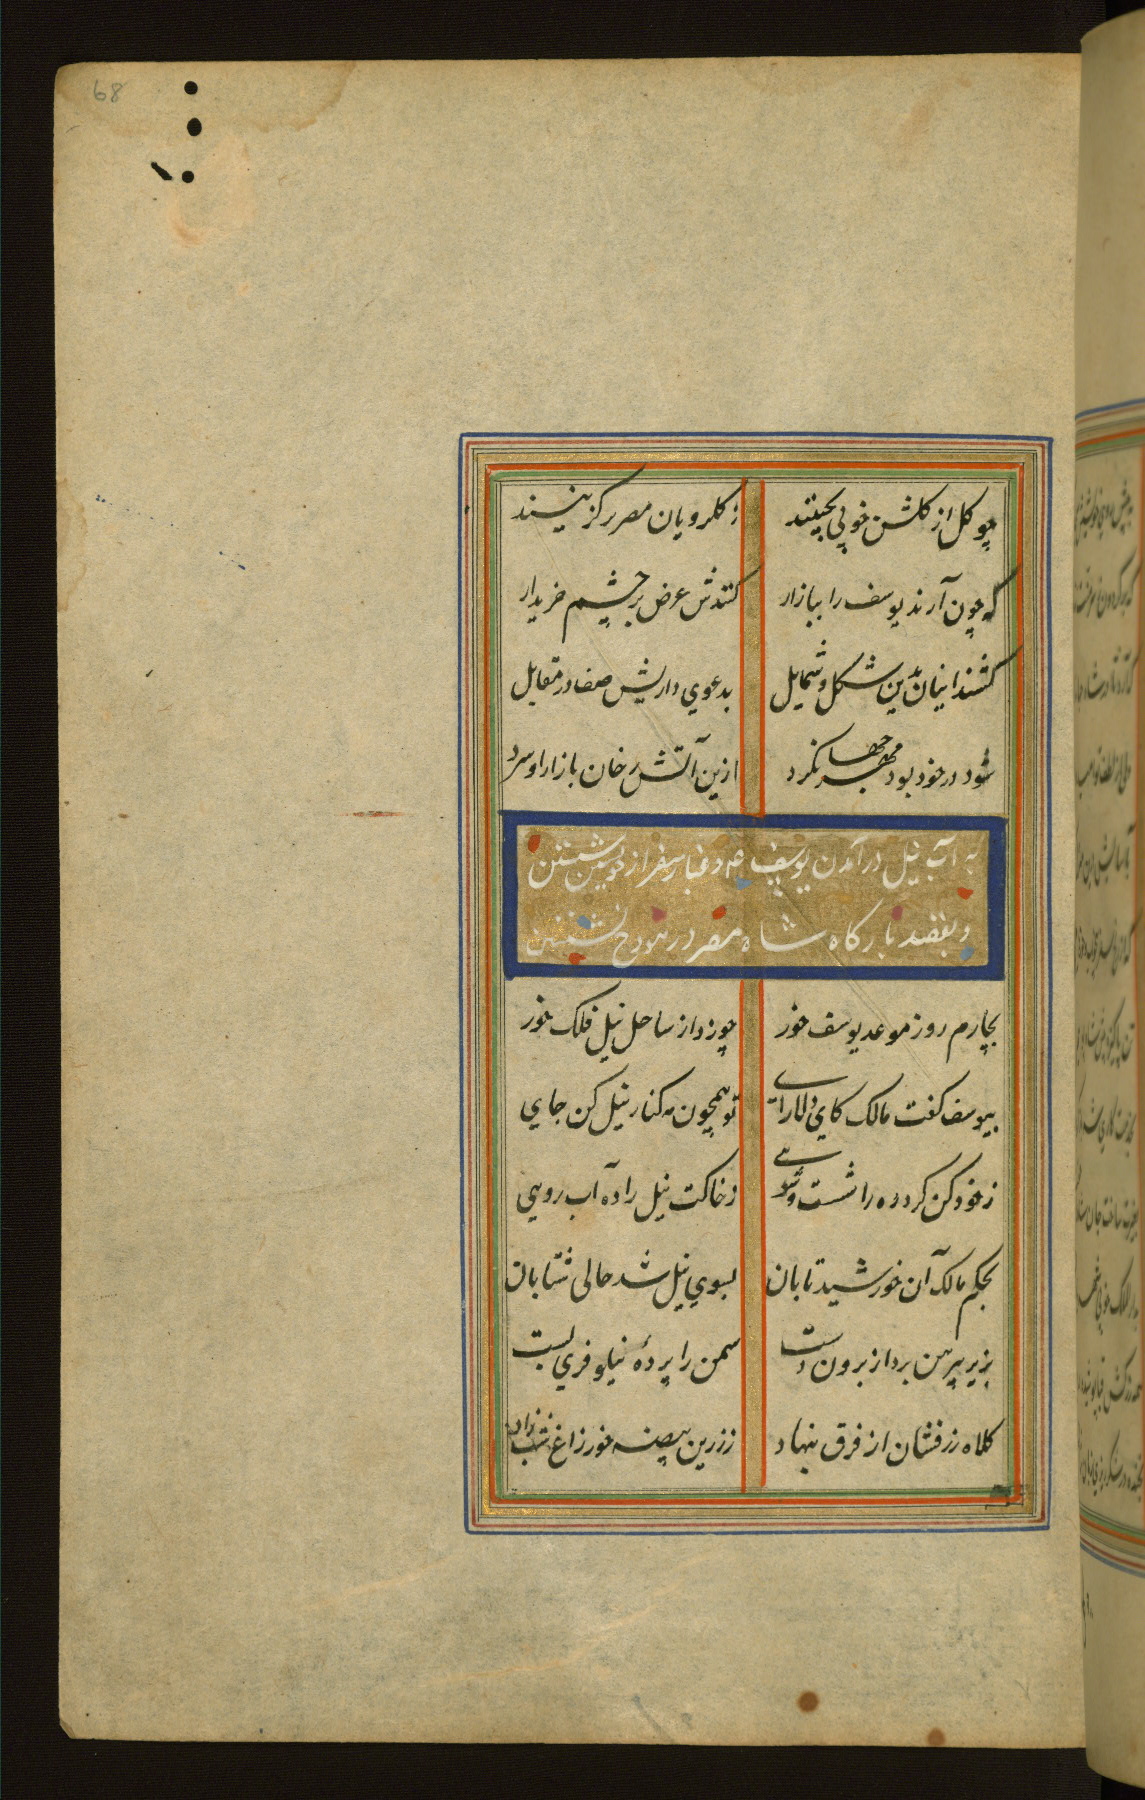 68
چو گل از گلشن خوبی بچینند ز گلرویان مصر گزینند
که چون آرند یوسف را ببازار کنندش عرض بر چشم خریدار
کشند اینان بدین شکل و شمایل بدعوی داریش صف در مقابل
شود در خود بود مهر جهانگرد ازین آتش رخان بازار او سرد
به آب نیل در آمدن یوسف و غبار سفر از خویشتن شستن
و بقصد بارگاه شاه مصر در هودج نشستن
بچارم روز موعد یوسف خور چو زد از ساحل نیل فلک خور
بیوسف گفت مالک کای دلارای تو همچون مه کنار نیل کن جای
ز خود کن گرد ره را شست و شوی ز خاکت نیل را ده آب رویی
بحکم مالک آن خورشید تابان بسوی نیل شد حالی شتابان
بزیر پیرهن برد از برون دست سمن را پردهٔ نیلوفری بست
کلاه زرفشان از فرق بنهاد ز زرین بیضه خور زاغ شب زاد